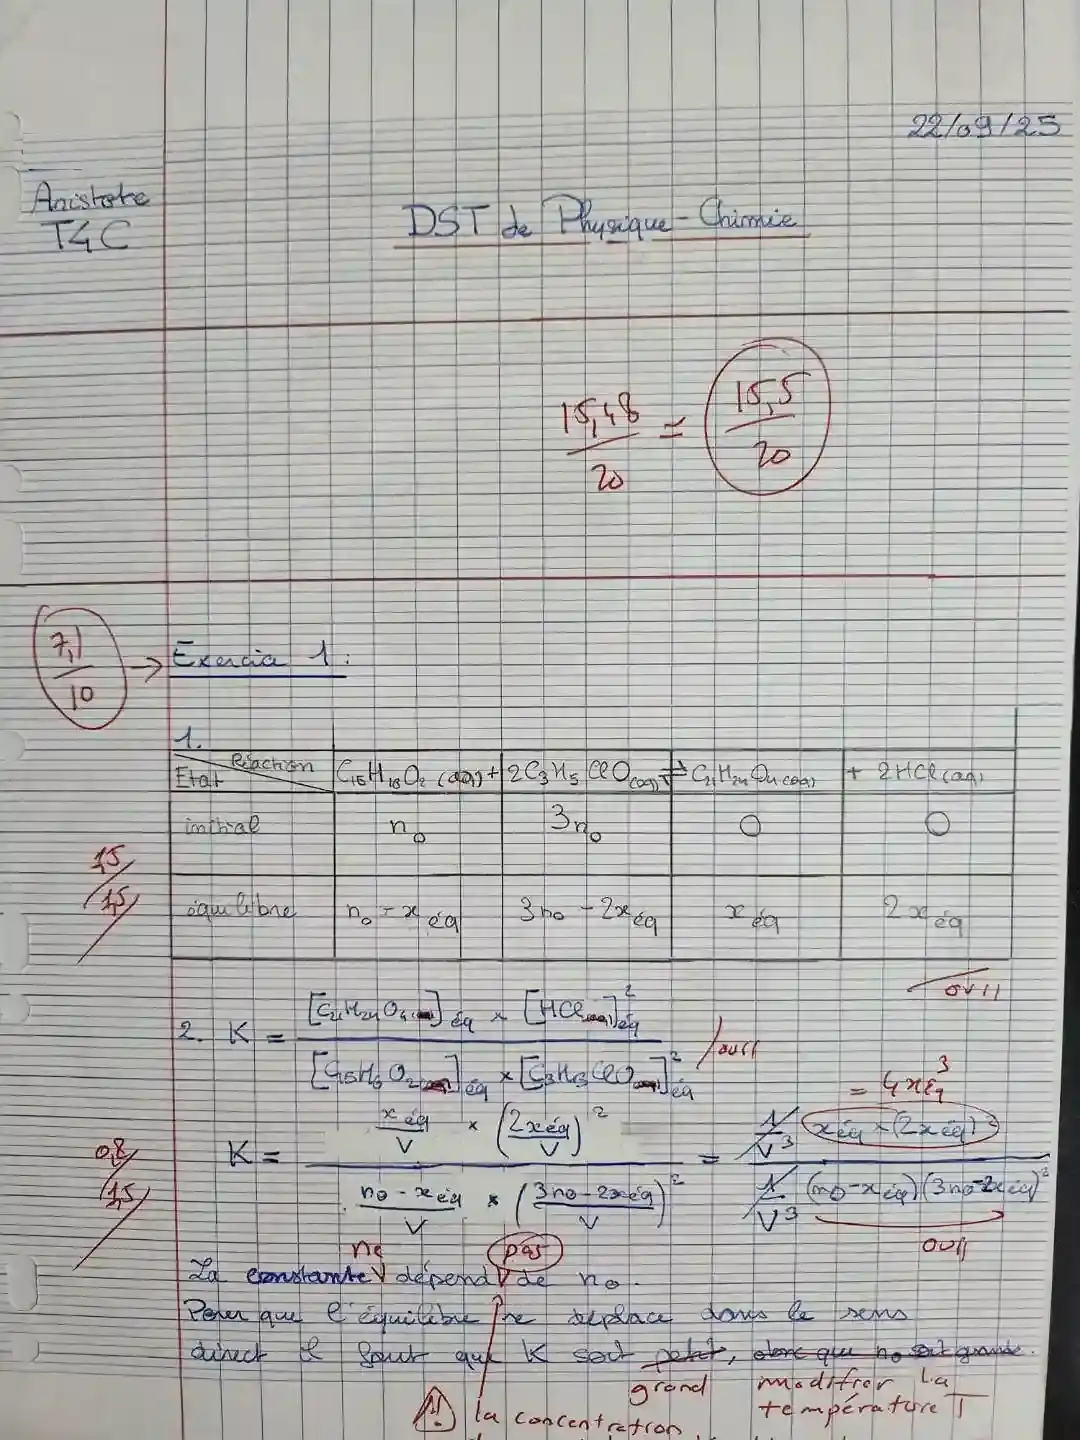 22/09/25
Aristote
T4C
DST de Physique-Chimie
15,48/20 = 15,5/20
7,1/10 → Exercice 1 :
1.
Etat Réaction C15H16O2 (aq) + 2C3H5ClO(aq) ⇌ C21H24O4(aq) + 2HCl(aq)
initial n0 3n0 0 0
1,5/1,5
équilibre n0 - xéq 3n0 - 2xéq xéq 2xéq
oui!
2. K = [C21H24O4]éq × [HCl]²éq / [C15H16O2]éq × [C3H5ClO]²éq oui!
= 4xéq³
K = xéq/V × (2xéq/V)² / n0 - xéq/V × (3n0 - 2xéq/V)² = 1/V³ xéq × (2xéq)² / 1/V³ (n0 - xéq)(3n0 - 2xéq)²
0,8/1,5
oui!
ne pas
La constante dépend de n0.
Pour que l'équilibre se déplace dans le sens
direct il faut que K soit petit, donc que n0 soit grande.
grand modifier la
température T
la concentration